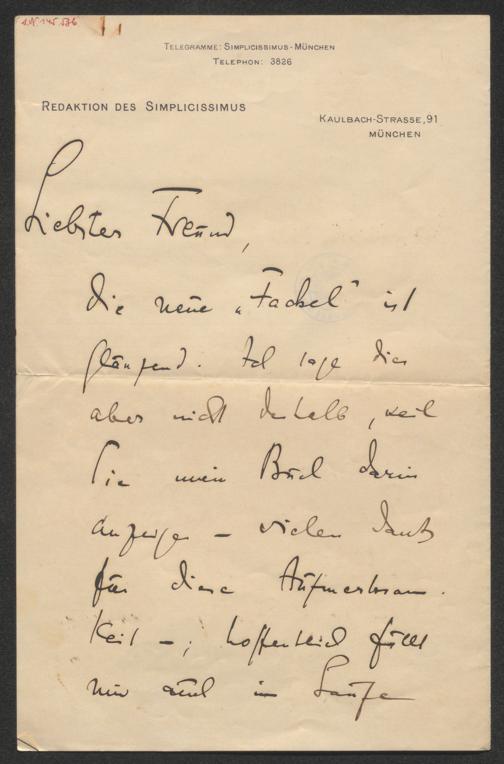 I.N. 145.536
TELEGRAMME: SIMPLICISSIMUS-MÜNCHEN
TELEPHON: 3826
REDAKTION DES SIMPLICISSIMUS
KAULBACH-STRASSE, 91
MÜNCHEN
Liebster Freund,
die neue „Fackel" ist
glänzend. Ich sage dies
aber nicht deshalb, weil
Sie mein Buch darin
anzeigen – vielen Dank
für diese Aufmerksam-
keit –; hoffentlich fällt
mir auch im Laufe